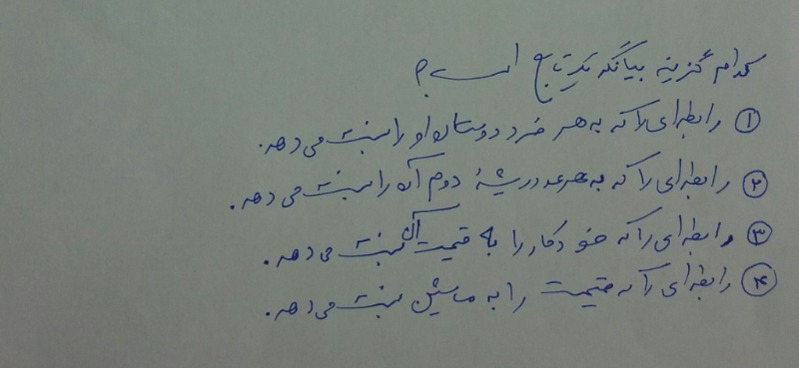 کدام گزینه بیانگر یک تابع است؟
① رابطه‌ای را که به هر فرد دوستان او را نسبت می‌دهد.
② رابطه‌ای را که به هر عدد ریشهٔ دوم آن را نسبت می‌دهد.
③ رابطه‌ای را که خودکار را به قیمت آن نسبت می‌دهد.
④ رابطه‌ای را که قیمت را به ماشین نسبت می‌دهد.